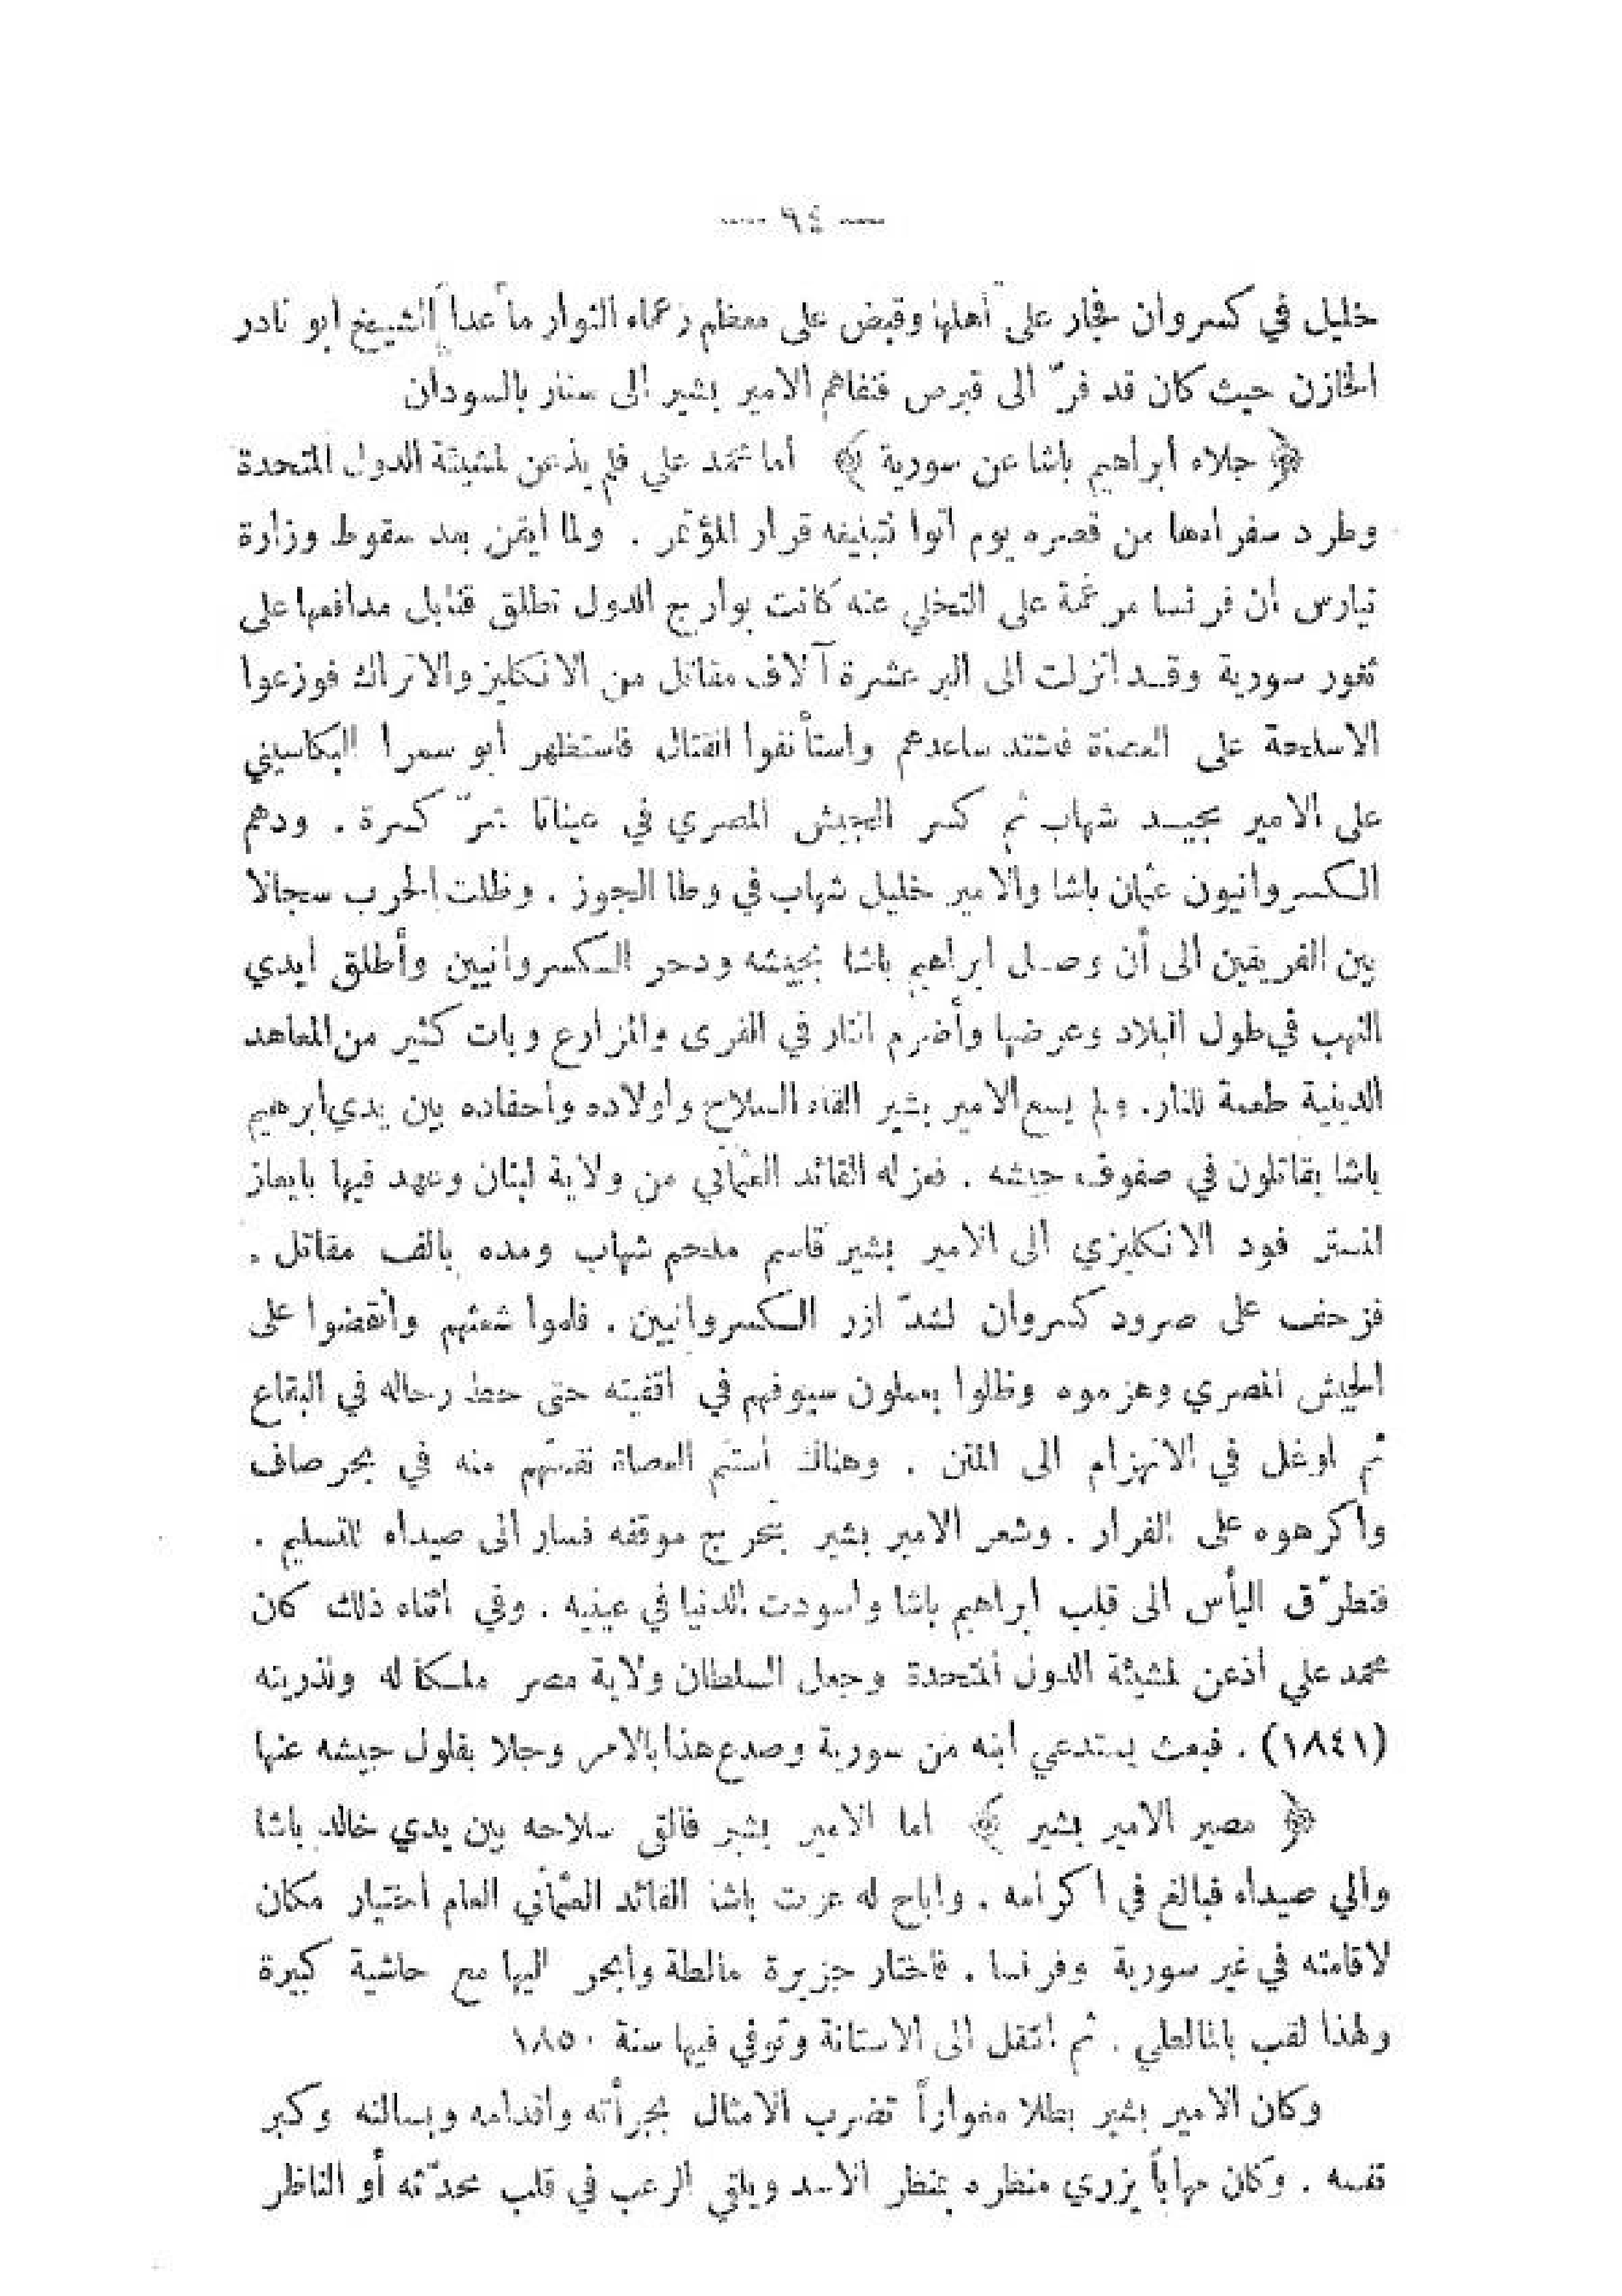 — ٦٤ —
خليل في كسروان فجار على أهلها وقبض على معظم زعماء الثوار ما عدا الشيخ ابو نادر
الخازن حيث كان قد فرّ الى قبرص فنفاهم الامير بشير الى سنار بالسودان
﴿ جلاء أبراهيم باشا عن سورية ﴾ أما محمد علي فلم يذعن لمشيئة الدول المتحدة
وطرد سفراءها من قصره يوم أتوا لتبليغه قرار المؤتمر . ولما ايقن بعد سقوط وزارة
تيارس أن فرنسا مرغمة على التخلي عنه كانت بوارج الدول تطلق قنابل مدافعها على
ثغور سورية وقد أنزلت الى البر عشرة آلاف مقاتل من الانكليز والاتراك فوزعوا
الاسلحة على العصاة فاشتد ساعدهم واستأنفوا القتال فاستظهر ابو سمرا البكاسيني
على الامير مجيد شهاب ثم كسر الجيش المصري في عيناتا شرّ كسرة . ودهم
الكسروانيون عثمان باشا والامير خليل شهاب في وطا الجوز . وظلت الحرب سجالا
بين الفريقين الى أن وصل ابراهيم باشا بجيشه ودحر الكسروانيين وأطلق ايدي
النهب في طول البلاد وعرضها وأضرم النار في القرى والمزارع وبات كثير من المعاهد
الدينية طعمة للنار. ولم يسع الامير بشير القاء السلاح واولاده وأحفاده بين يدي ابرهيم
باشا يقاتلون في صفوف جيشه . فعزله القائد العثماني من ولاية لبنان وعهد فيها بايعاز
المستر فود الانكليزي الى الامير بشير قاسم ملحم شهاب ومده بالف مقاتل .
فزحف على صرود كسروان لشدّ ازر الكسروانيين . فلموا شعثهم وانقضوا على
الجيش المصري وهزموه وظلوا يعملون سيوفهم في اقفيته حتى حط رحاله في البقاع
ثم اوغل في الانهزام الى المتن . وهناك استتم العصاة نقمتهم منه في بحرصاف
واكرهوه على الفرار . وشعر الامير بشير بتحرج موقفه فسار الى صيداء للتسليم .
فتطرّق اليأس الى قلب ابراهيم باشا واسودت الدنيا في عينيه . وفي اثناء ذلك كان
محمد علي اذعن لمشيئة الدول المتحدة وجعل السلطان ولاية مصر ملكا له ولذريته
(١٨٤١) . فبعث يستدعي ابنه من سورية وصدع هذا بالامر وجلا بفلول جيشه عنها
﴿ مصير الامير بشير ﴾ اما الامير بشير فألقى سلاحه بين يدي خالد باشا
والي صيداء فبالغ في اكرامه . واباح له عزت باشا القائد العثماني العام اختيار مكان
لاقامته في غير سورية وفرنسا . فاختار جزيرة مالطة وأبحر اليها مع حاشية كبيرة
ولهذا لقب بالمالطي . ثم انتقل الى الاستانة وتوفي فيها سنة ١٨٥٠
وكان الامير بشير بطلا مغواراً تضرب الامثال بجرأته واقدامه وبسالته وكبر
نفسه . وكان مهاباً يزري منظره بمنظر الاسد ويلقي الرعب في قلب محدّثه أو الناظر